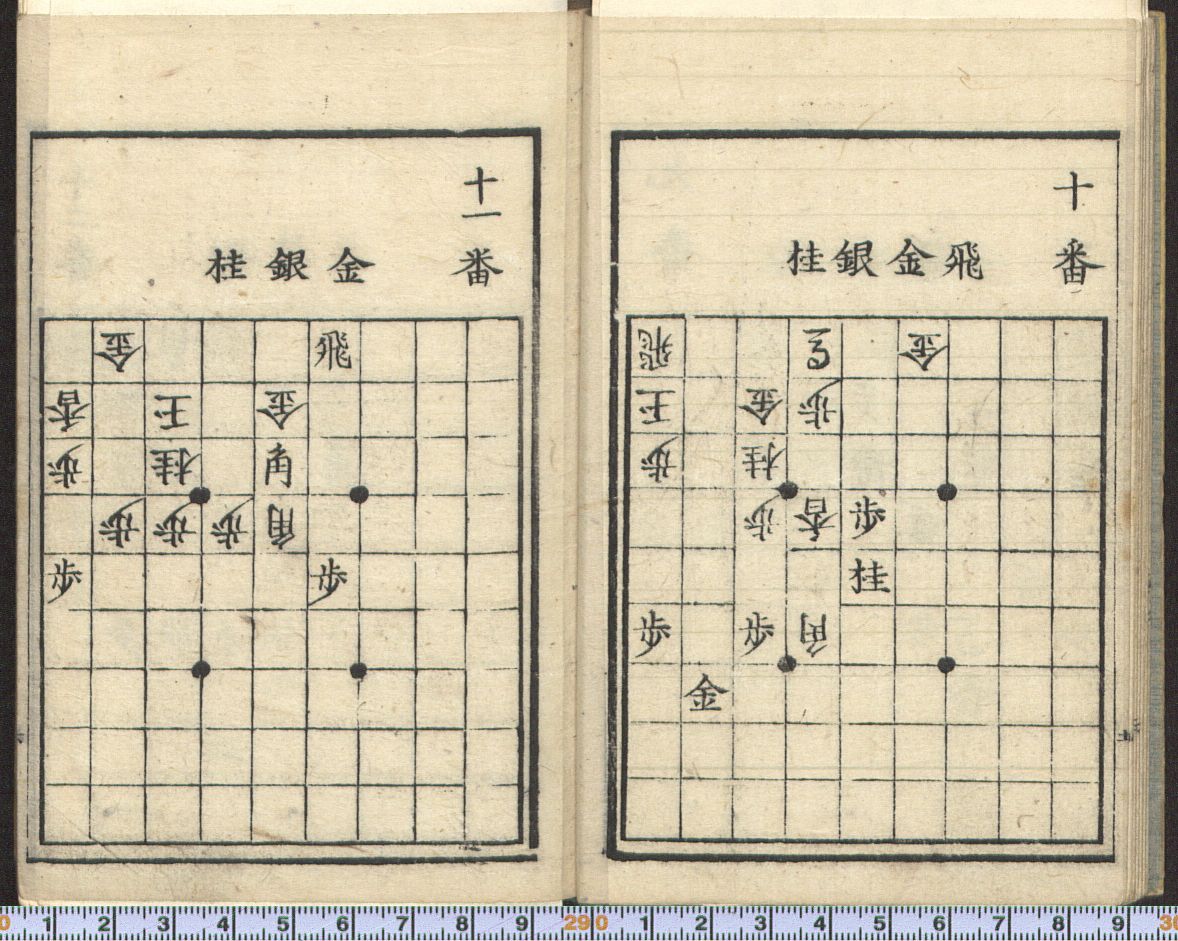 十番
飛金銀桂
飛 马 金
王 金 歩
歩 桂
歩 香 歩
桂
歩 歩 角
金
十一番
金銀桂
金 飛
香 王 金
歩 桂 角
歩 歩 歩 角
歩 歩
0 1 2 3 4 5 6 7 8 9 29
0 1 2 3 4 5 6 7 8 9 30